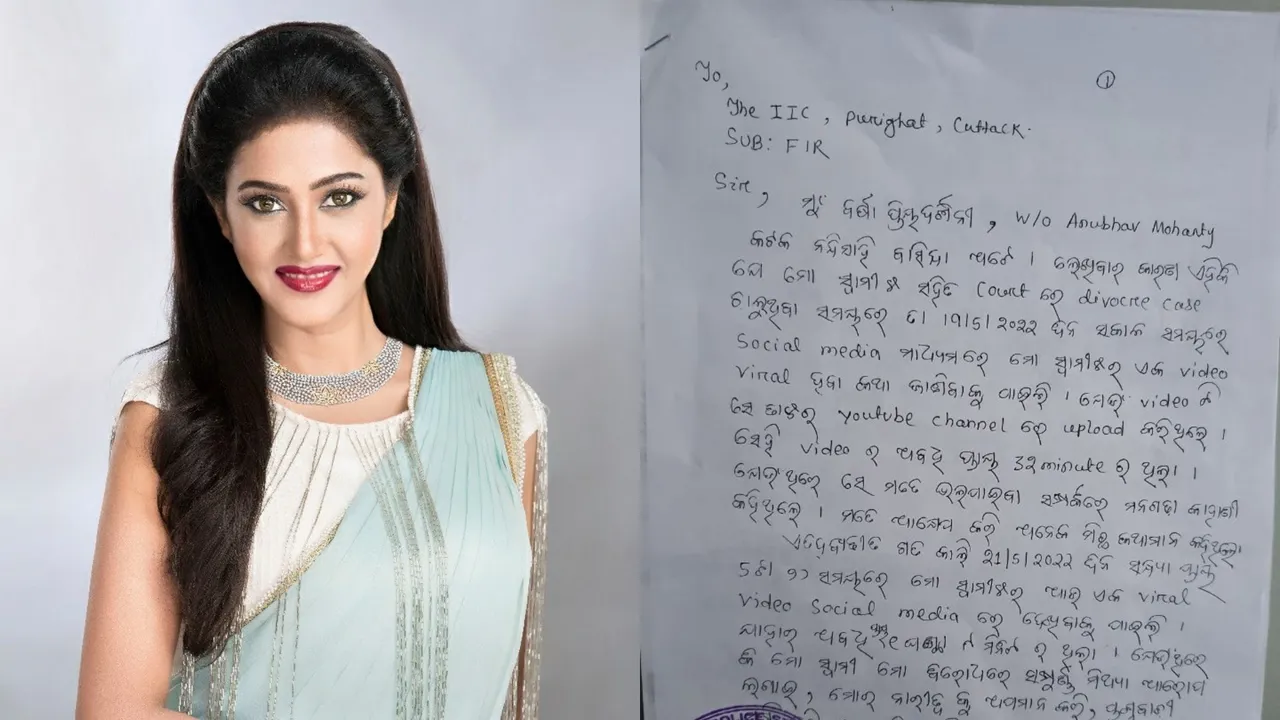 ①
To,
The IIC, Purighat, Cuttack.
SUB: FIR
Sir, ମୁଁ ବର୍ଷା ପ୍ରିୟଦର୍ଶିନୀ, W/o Anubhav Mohanty
କଟକ ନନ୍ଦିସାହି ବାସିନ୍ଦା ଅଟେ । ଲେଖିବାର କାରଣ ଏହିକି
ଯେ ମୋ ସ୍ୱାମୀଙ୍କ ସହିତ Court ରେ divorce case
ଚାଲୁଥିବା ସମୟରେ ତା 19/5/2022 ଦିନ ସକାଳ ସମୟରେ
Social media ମାଧ୍ୟମରେ ମୋ ସ୍ୱାମୀଙ୍କର ଏକ video
viral ହେବା କଥା ଜାଣିବାକୁ ପାଇଲି । ଯେଉଁ video ଟି
ସେ ତାଙ୍କର youtube channel ରେ upload କରିଥିଲେ ।
ସେହି video ର ଅବଧି ପ୍ରାୟ 32 minute ର ଥିଲା ।
ଯେଉଁଥିରେ ସେ ମତେ ଭଲପାଇବା ସମ୍ପର୍କରେ ମନଗଢା କାହାଣୀ
କହିଥିଲେ । ମତେ ଆକ୍ଷେପ କରି ଅନେକ ମିଛ କଥାମାନ କହିଥିଲେ
ଏତଦ୍‌ବ୍ୟତୀତ ଗତ କାଲି 21/5/2022 ଦିନ ସନ୍ଧ୍ୟା ପ୍ରାୟ
5ଟା ସମୟରେ ମୋ ସ୍ୱାମୀଙ୍କର ଆଉ ଏକ viral
video social media ରେ ଦେଖିବାକୁ ପାଇଲି ।
ଯାହାର ଅବଧି ମିନିଟ ର ଥିଲା । ଯେଉଁଥିରେ
କି ମୋ ସ୍ୱାମୀ ମୋ ବିରୋଧରେ ସମ୍ପୂର୍ଣ୍ଣ ମିଥ୍ୟା ଆରୋପ
ଲଗାଇ, ମୋର ନାରୀତ୍ୱ କୁ ଅପମାନ କରି,